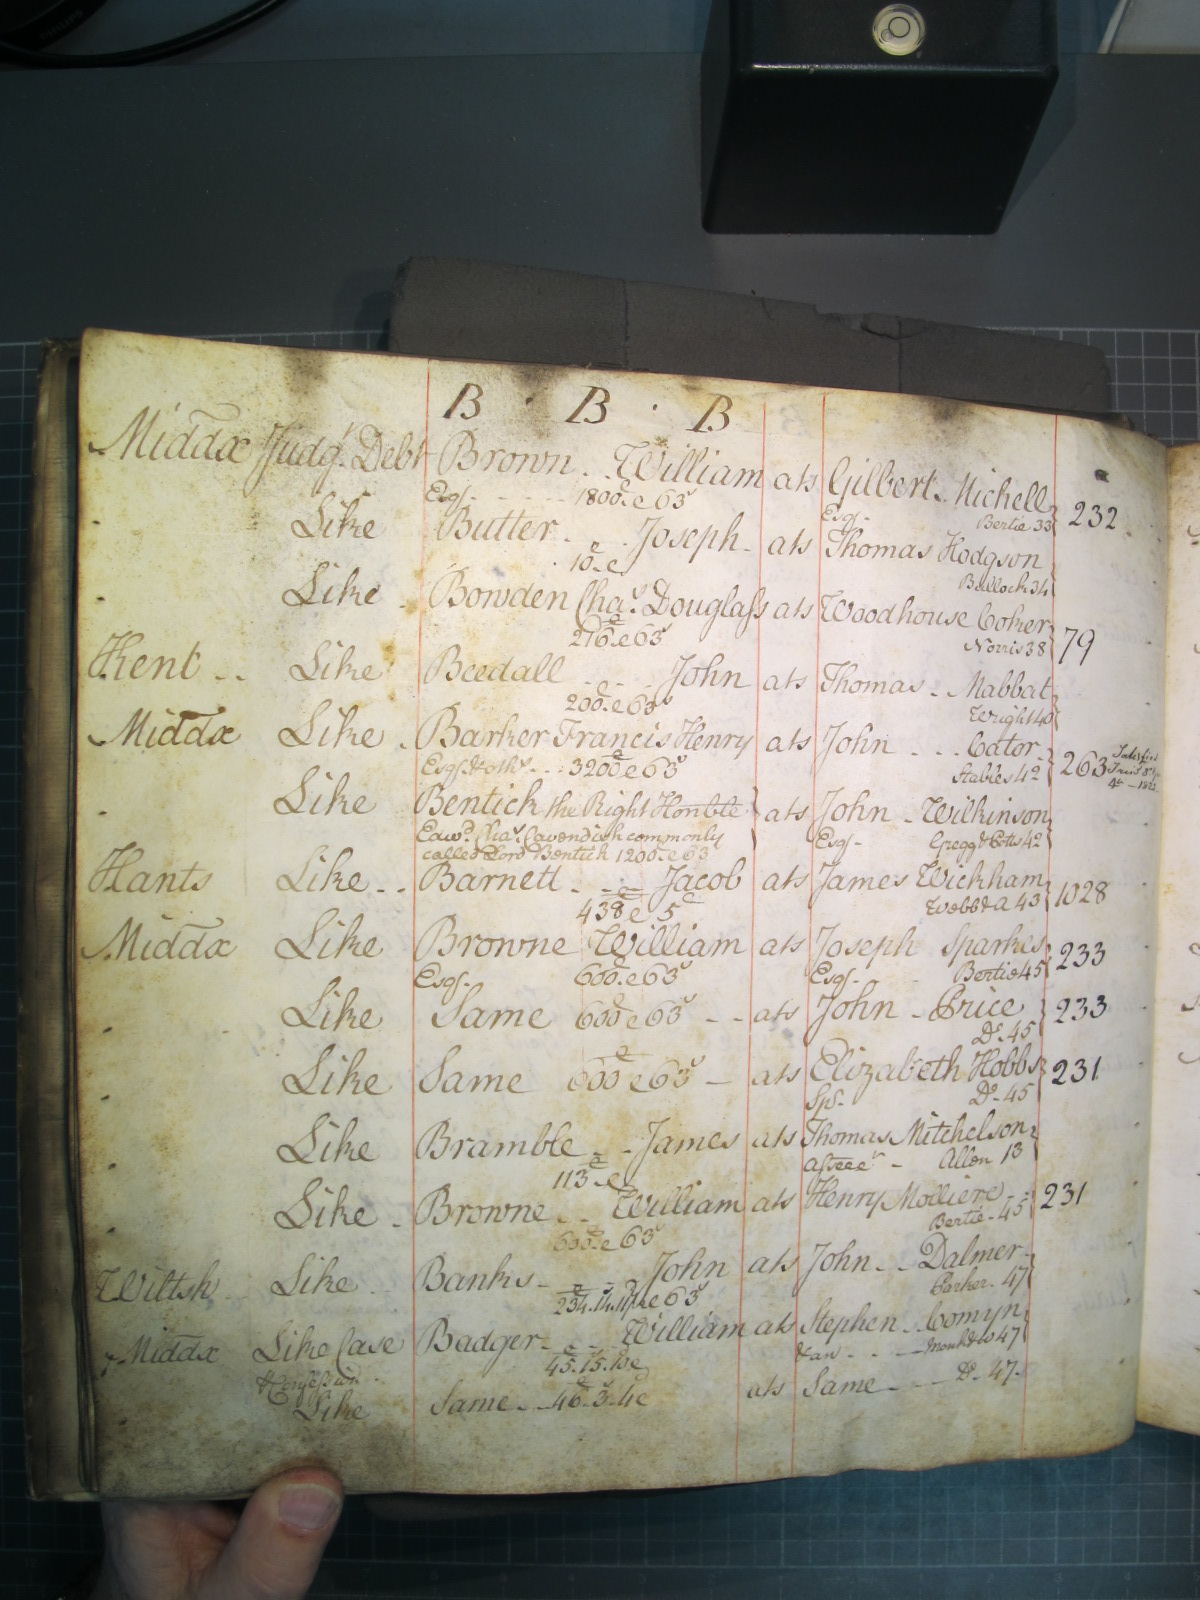 B · B · B
Middx Judgt. Debt Brown - William ats Gilbert Michell
Esqr. - - - - - 1800£ e 63s Esqr. - Bertie 33 232
Like Butter - - Joseph - ats Thomas Hodgson
10£ e Bullock 34
Like - Bowden Chas. Douglass ats Woodhouse Coker
276£ e 63s Norris 38 79
Kent - - Like Beedall - - - John ats Thomas - Mabbat
200£ e 63s Wright 40
Middx Like - Barker Francis Henry ats John - - - Cator
Esqr. & othrs - - - 3200£ e 63s Stables 42 263
Like Bentick the Right Honble ats John - Wilkinson
Edwd. Chas. Cavendish commonly Esqr - Gregg & Potts 42
called Lord Bentick 1200£ e 63
Hants Like - - Barnett - - - Jacob ats James Wickham
438£ e 5 Webb & A 43 1028
Middx Like Browne William ats Joseph Sparkes
Esqr - 600£ e 63s Esqr - Bertie 45 233
Like Same 600£ e 63s - - ats John - Price 233
Do. 45
Like Same 600£ e 63s - ats Elizabeth Hobbs 231
Spr - Do - 45
Like Bramble - - James ats Thomas Mitchelson
113£ e Assee - Allen 13
Like - Browne - - William ats Henry Modiere - - 231
600£ e 63s Bertie - 45
Wiltsh - Like Banks - - - - John ats John - - Dalmer -
234.14.11½ e 63s Parker - 47
Middx Like Case Badger - - - William ats Stephen - Comyn
& Confession - 45.15.10 e & an - - - 47
Like Same - - 46.3.4 e ats Same - - - Do. 47 -